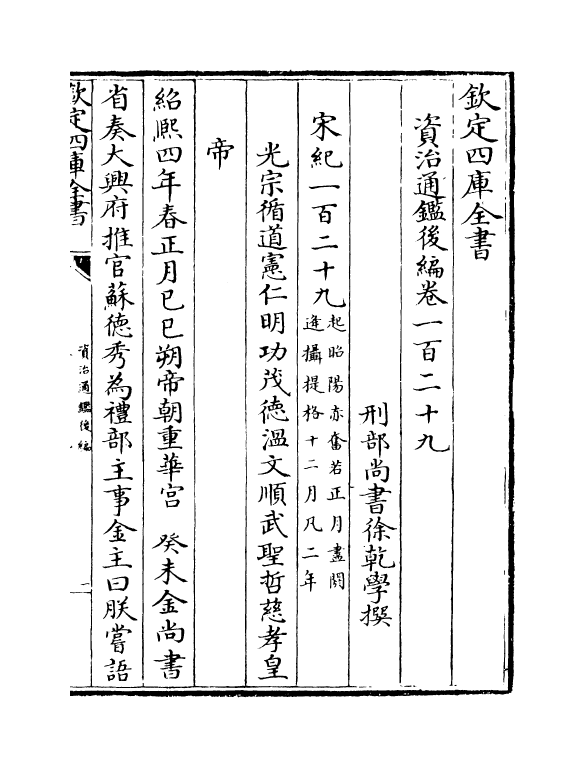 欽定四庫全書
資治通鑑後編卷一百二十九
刑部尚書徐乾學撰
宋紀一百二十九起昭陽赤奮若正月盡閼
逢攝提格十二月凡二年
光宗循道憲仁明功茂德溫文順武聖哲慈孝皇
帝
紹熈四年春正月已巳朔帝朝重華宮　癸未金尚書
省奏大興府推官蘇德秀為禮部主事金主曰朕嘗語
欽定四庫全書
資治通鑑後編